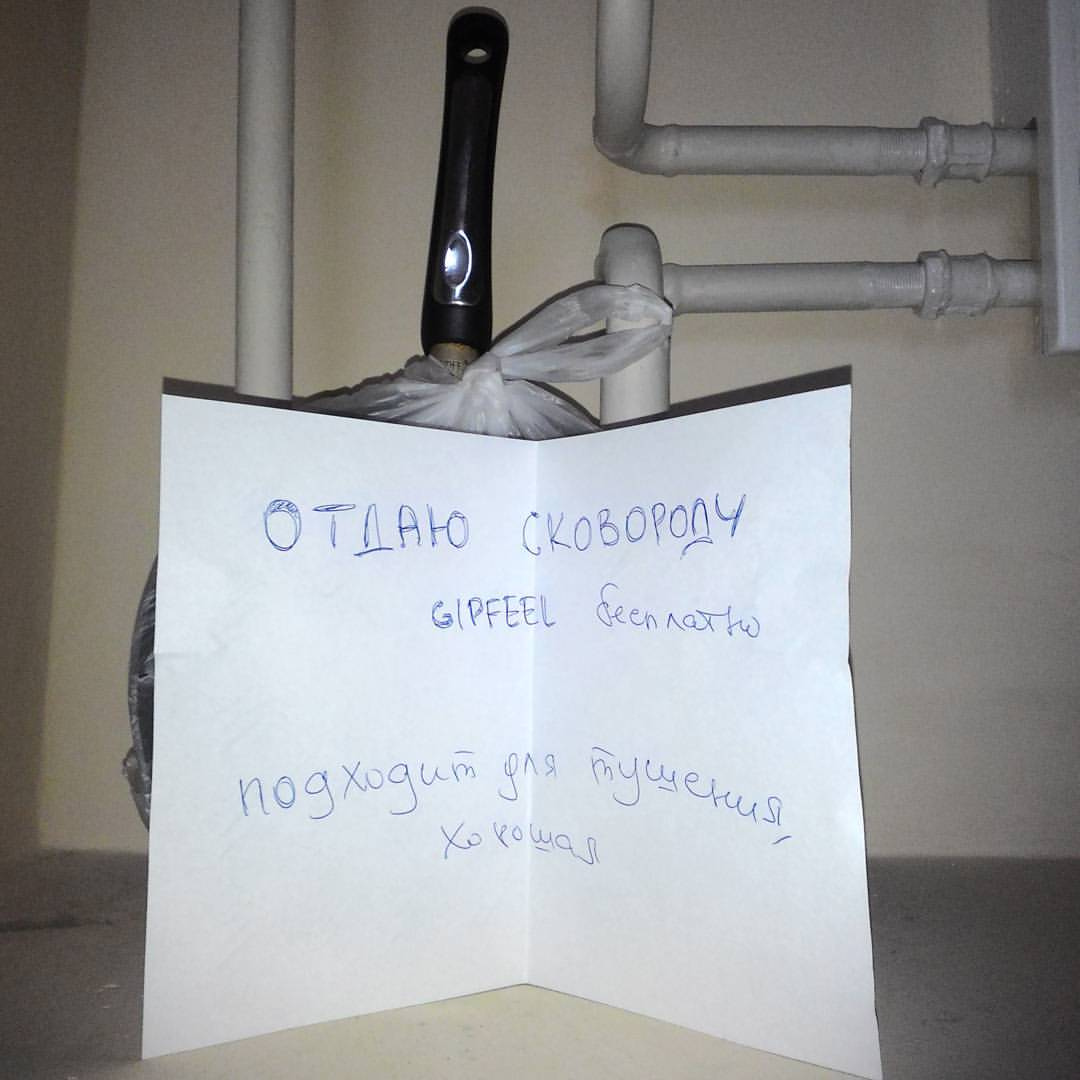 ОТДАЮ СКОВОРОДУ
GIPFEEL бесплатно
подходит для тушения,
хорошая